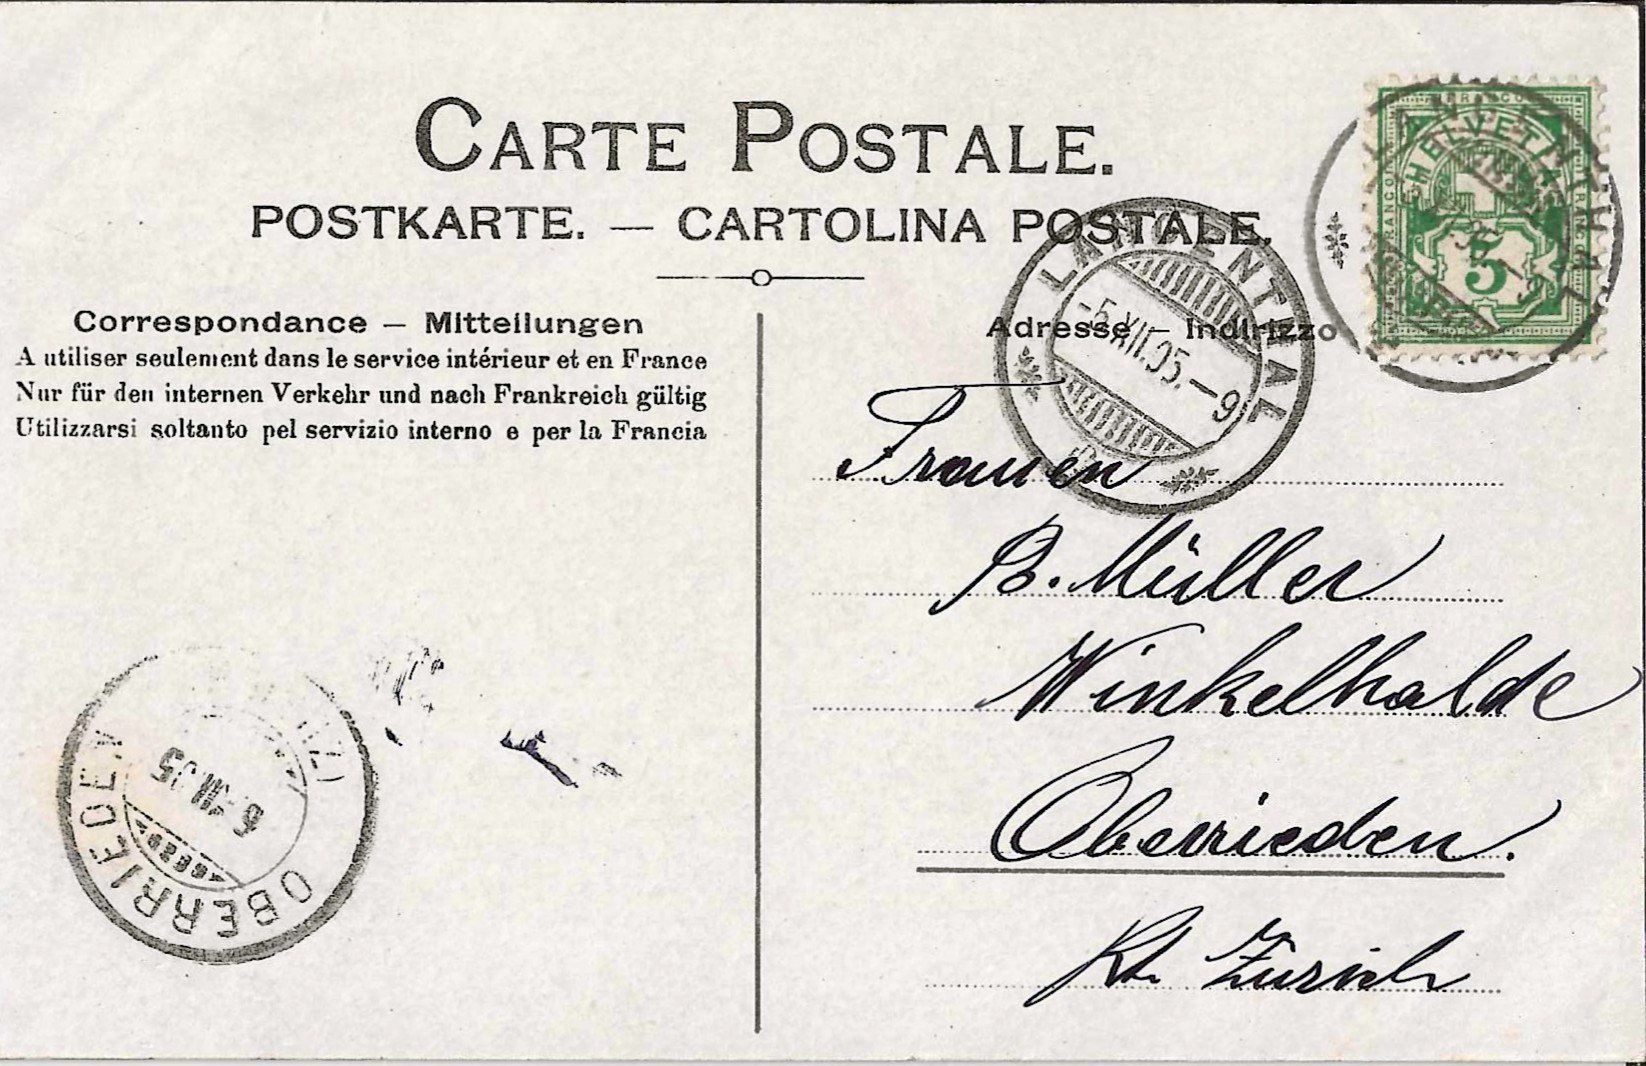 CARTE POSTALE.
POSTKARTE. — CARTOLINA POSTALE.
Correspondance — Mitteilungen
A utiliser seulement dans le service intérieur et en France
Nur für den internen Verkehr und nach Frankreich gültig
Utilizzarsi soltanto pel servizio interno e per la Francia
Adresse — Indirizzo
FRANCO
HELVETIA
5
LANGENTHAL
LANGENTHAL
-5.XII.05.-9
Frauen
B. Müller
Winkelhalde
Oberrieden.
Kt. Zürich
OBERRIEDEN
6.XII.05